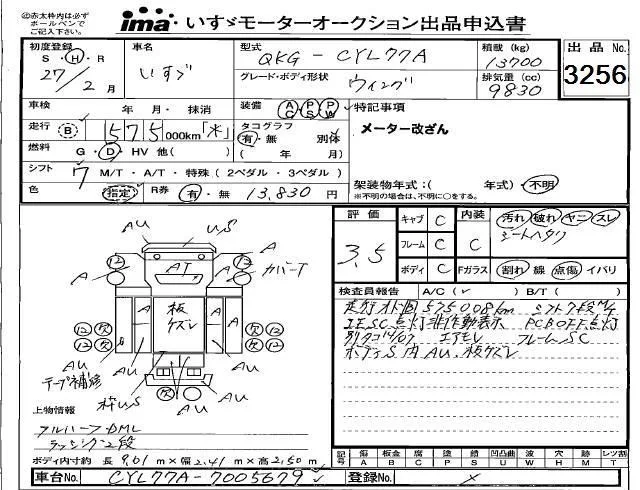 ㊟赤太枠内は必ず
ボールペンで
ご記入下さい。
ima いすゞモーターオークション出品申込書
初度登録
S・H・R
27/2月
車名
いすゞ
型式
QKG-CYL77A
グレード・ボディ形状
ウィング
積載 (kg)
13700
排気量 (cc)
9830
出品No.
3256
車検 年・月・抹消
装備 AC PS PW
走行 B 575,000km「*」
タコグラフ
有・無 別体
( 年 月)
燃料 G・D・HV 他( )
シフト 7 M/T・A/T・特殊(2ペダル・3ペダル)
色 指定 R券 有・無 13,830円
特記事項
メーター改ざん
架装物年式:( 年式)・不明
※不明の場合は、不明に○をする。
評価
3.5
キャブ C
フレーム C
ボディ C
内装
C
汚れ 破れ ヤニ スレ
シートヘタリ
Fガラス 割れ 線 点傷 イバリ
検査員報告 A/C(✓) B/T( )
走行オド図575008km シフト7段M/T
IESC点灯非作動表示 PCBOFF点灯
別タコ14/07 エアモレ フレームSC
ボディS内AU、板ケズレ
AU
US
AU
12
A
AT
12
カバーT
A
A
板
ケズレ
A
12 欠
欠 12
12 12
12 12
AU
テープ補修
AU
枠US
AU
欠
AU
上物情報
フルハーフDML
ラッシング2段
ボディ内寸約 長9.61m×幅2.41m×高2.50m
記号 傷A 板金B 腐C 塗P 錆S 凹凸曲U 波W 穴H 跡M レツ割T
車台No. CYL77A-7005679
登録No. ×